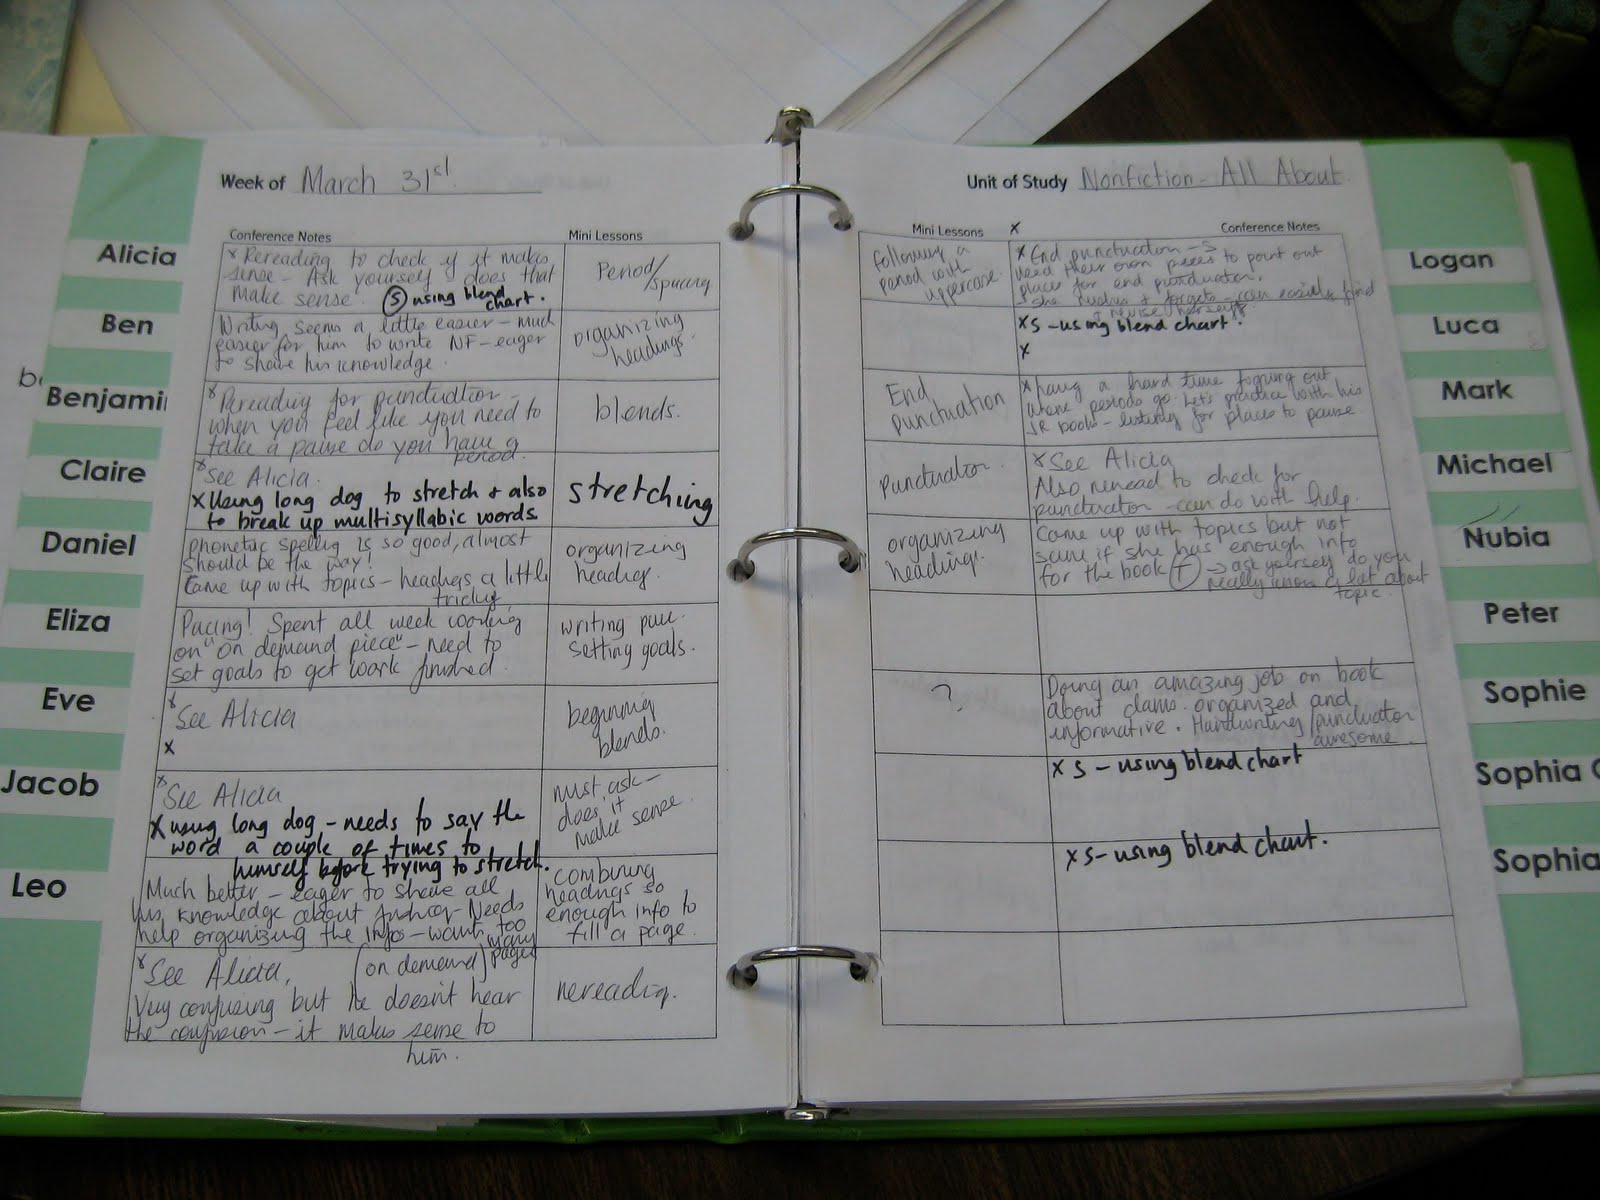 Week of March 31st
Conference Notes
Mini Lessons
Alicia
x Rereading to check if it makes
sense - Ask yourself does that
make sense. (S) using blend
chart.
Period/
spacing
Ben
Writing seems a little easier - much
easier for him to write NF - eager
to share his knowledge.
organizing
headings.
Benjami
x Rereading for punctuation -
when you feel like you need to
take a pause do you have a
period.
blends.
Claire
x See Alicia.
x Using long dog to stretch + also
to break up multisyllabic words
stretching
Daniel
Phonetic spelling is so good, almost
should be the way!
Came up with topics - headings a little
tricky
organizing
headings.
Eliza
Pacing! Spent all week working
on "on demand piece" - need to
set goals to get work finished.
writing
setting goals.
Eve
x See Alicia
x
beginning
blends.
Jacob
x See Alicia
x using long dog - needs to say the
word a couple of times to
himself before trying to stretch.
must ask -
does it
make sense.
Leo
Much better - eager to share all
his knowledge about Needs
help organizing the info - want too
many
pages
combining
headings so
enough info to
fill a page.
x See Alicia, (on demand)
Very confusing but he doesn't hear
the confusion - it makes sense to
him.
rereading.
Unit of Study Nonfiction - All About
Mini Lessons
x
Conference Notes
Logan
following a
period with
uppercase.
x End punctuation - S
need their own pieces to point out
places for end punctuation.
She rushes + forgets - can easily find
+ revise herself
Luca
x S - using blend chart.
x
Mark
End
punctuation
x having a hard time figuring out
where periods go. Let's practice with his
JR books - listening for places to pause
Michael
Punctuation.
x See Alicia
Also reread to check for
punctuation - can do with help.
Nubia
organizing
headings.
Came up with topics but not
sure if she has enough info
for the book (T) → ask yourself do you
really know a lot about
topic.
Peter
Sophie
?
Doing an amazing job on book
about clams. organized and
informative. Handwriting/punctuation
awesome.
Sophia
x S - using blend chart
Sophia
x S - using blend chart.